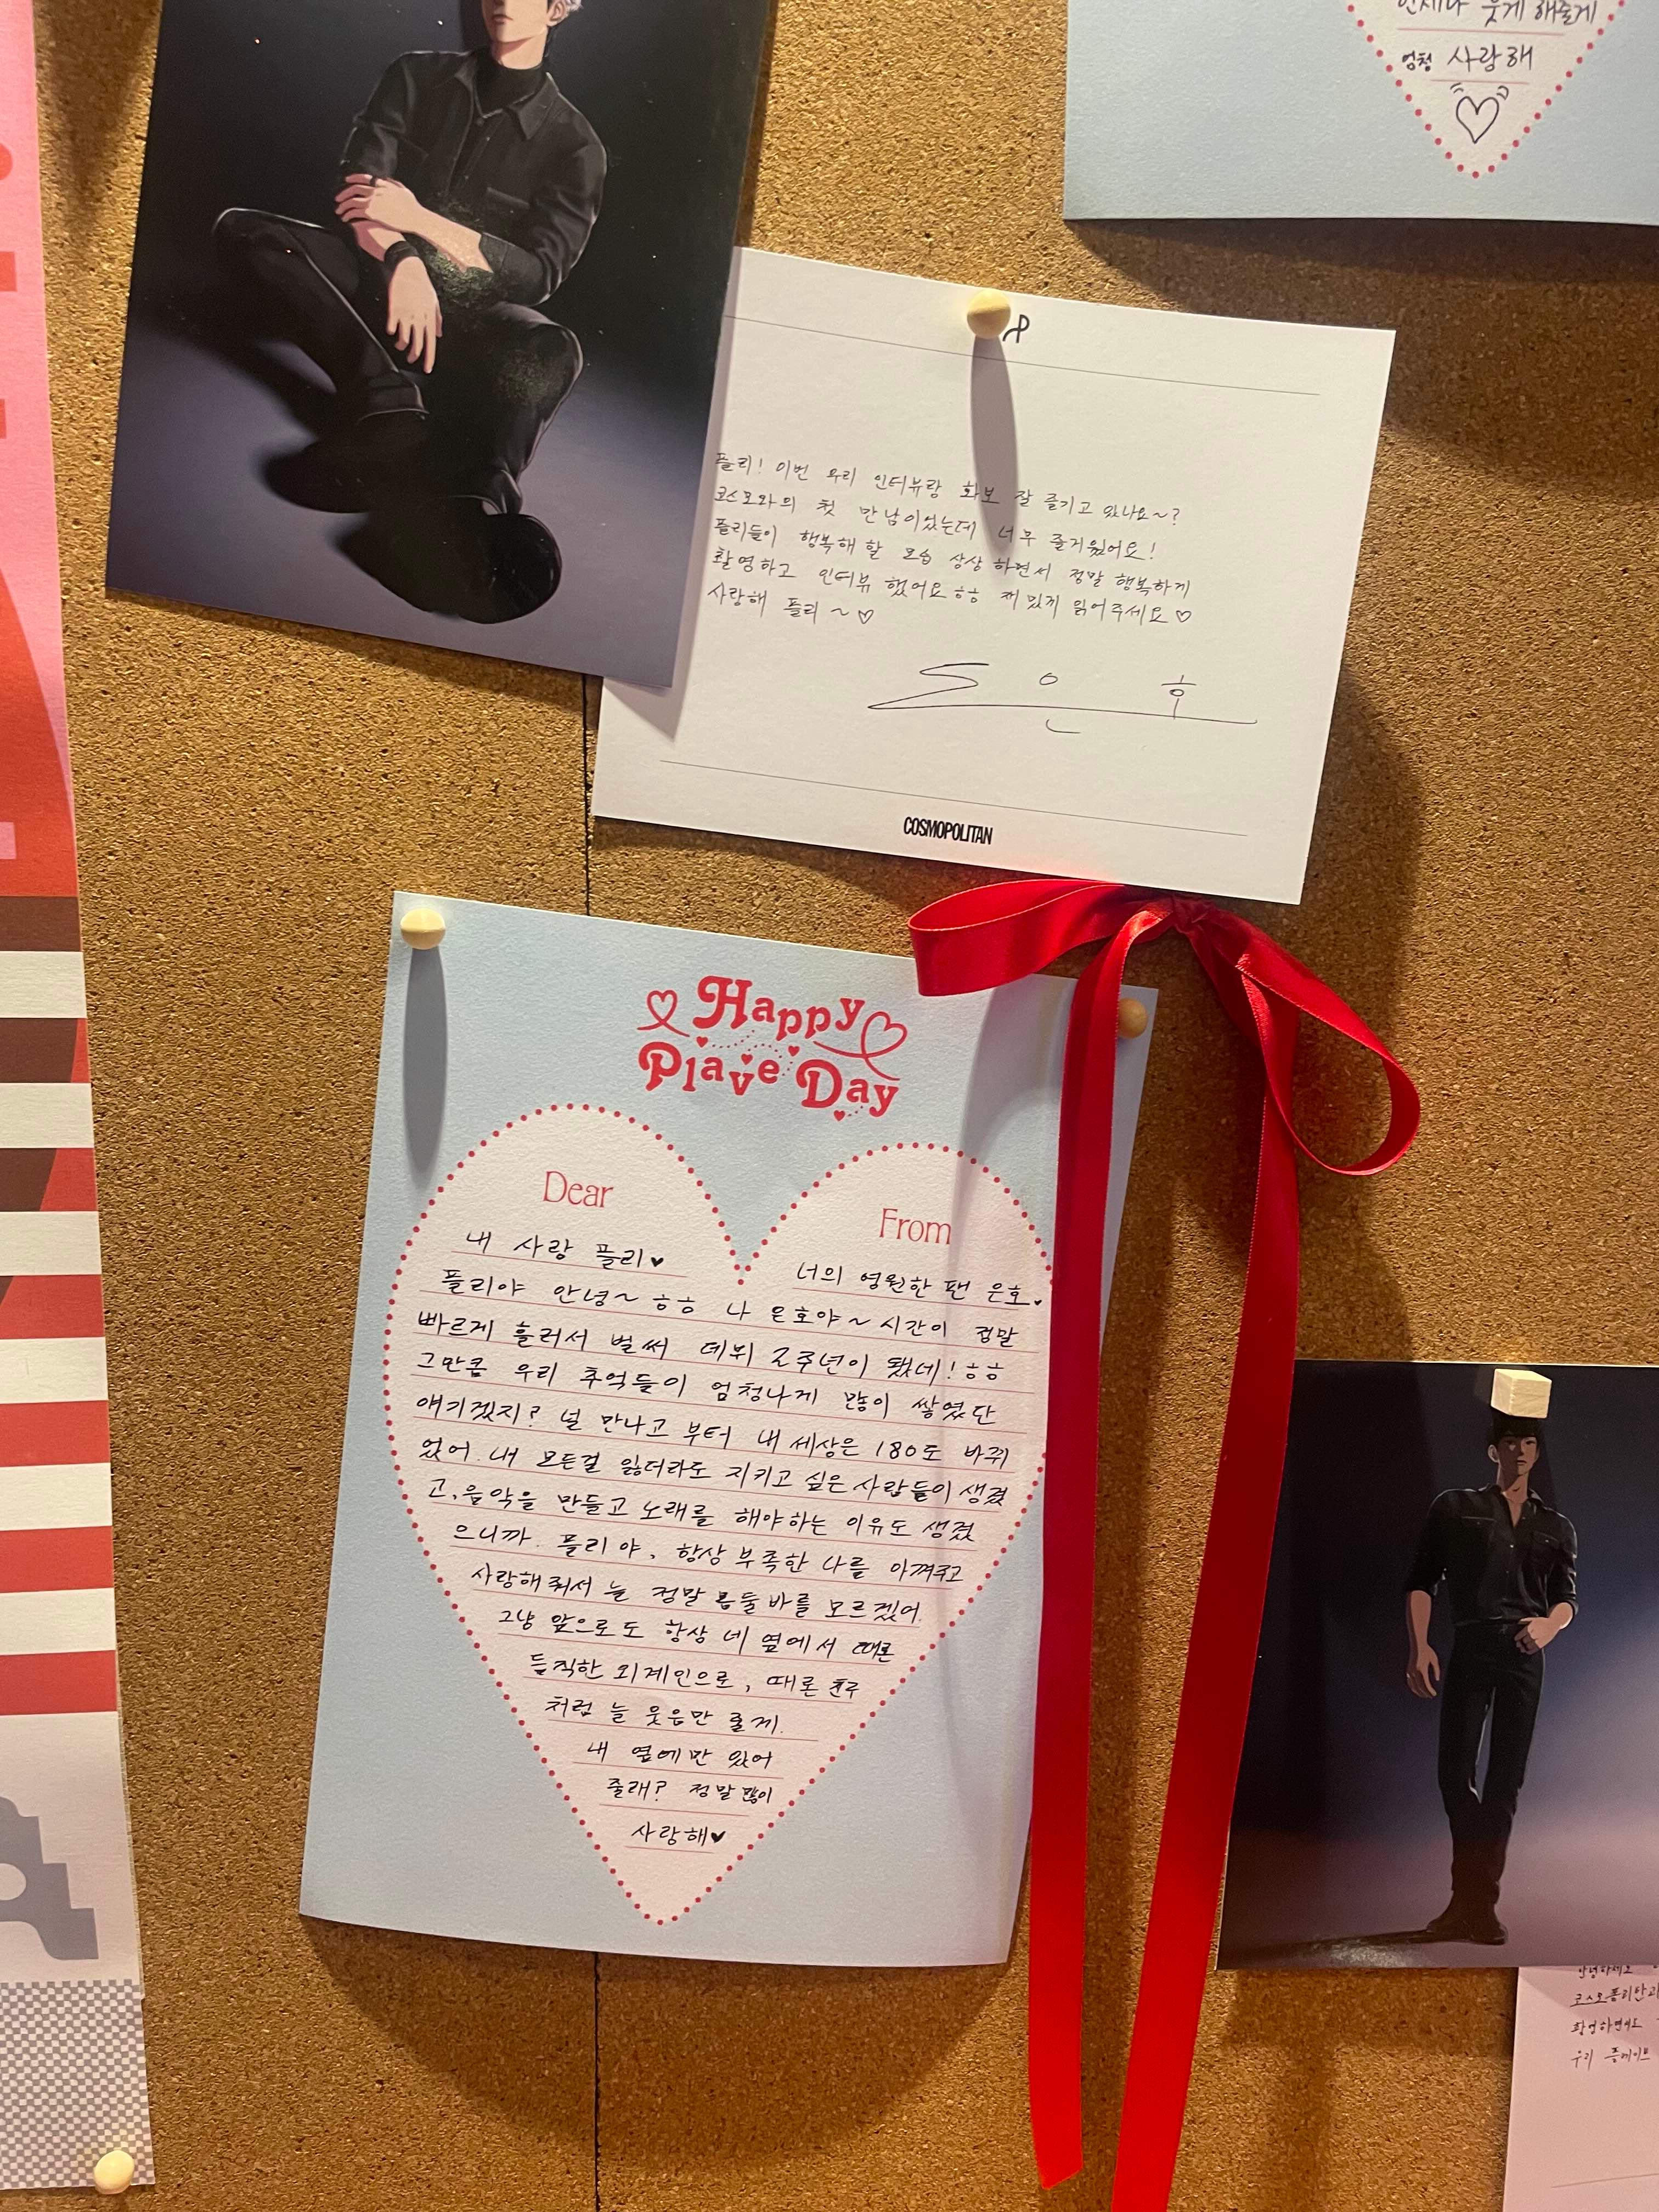 언제나 웃게 해줄게
엄청 사랑해
플리! 이번 우리 인터뷰랑 화보 잘 즐기고 있나요~?
코스모와의 첫 만남이었는데 너무 즐거웠어요!
플리들이 행복해 할 모습 상상 하면서 정말 행복하게
촬영하고 인터뷰 했어요ㅎㅎ 재밌게 읽어주세요♡
사랑해 플리~♡
은호
COSMOPOLITAN
Happy
Plave Day
Dear
내 사랑 플리♥
From
너의 영원한 팬 은호♥
플리야 안녕~ ㅎㅎ 나 은호야~ 시간이 정말
빠르게 흘러서 벌써 데뷔 2주년이 됐네!ㅎㅎ
그만큼 우리 추억들이 엄청나게 많이 쌓였단
얘기겠지? 널 만나고 부터 내 세상은 180도 바뀌
었어. 내 모든걸 잃더라도 지키고 싶은 사람들이 생겼
고, 음악을 만들고 노래를 해야하는 이유도 생겼
으니까. 플리야, 항상 부족한 나를 아껴주고
사랑해줘서 늘 정말 몸둘바를 모르겠어.
그냥 앞으로도 항상 네 옆에서 때론
듬직한 외계인으로, 때론 친구
처럼 늘 웃음만 줄게.
내 옆에만 있어
줄래? 정말 많이
사랑해♥
안녕하세요
코스모폴리탄과
촬영하면서도
우리 플레이브